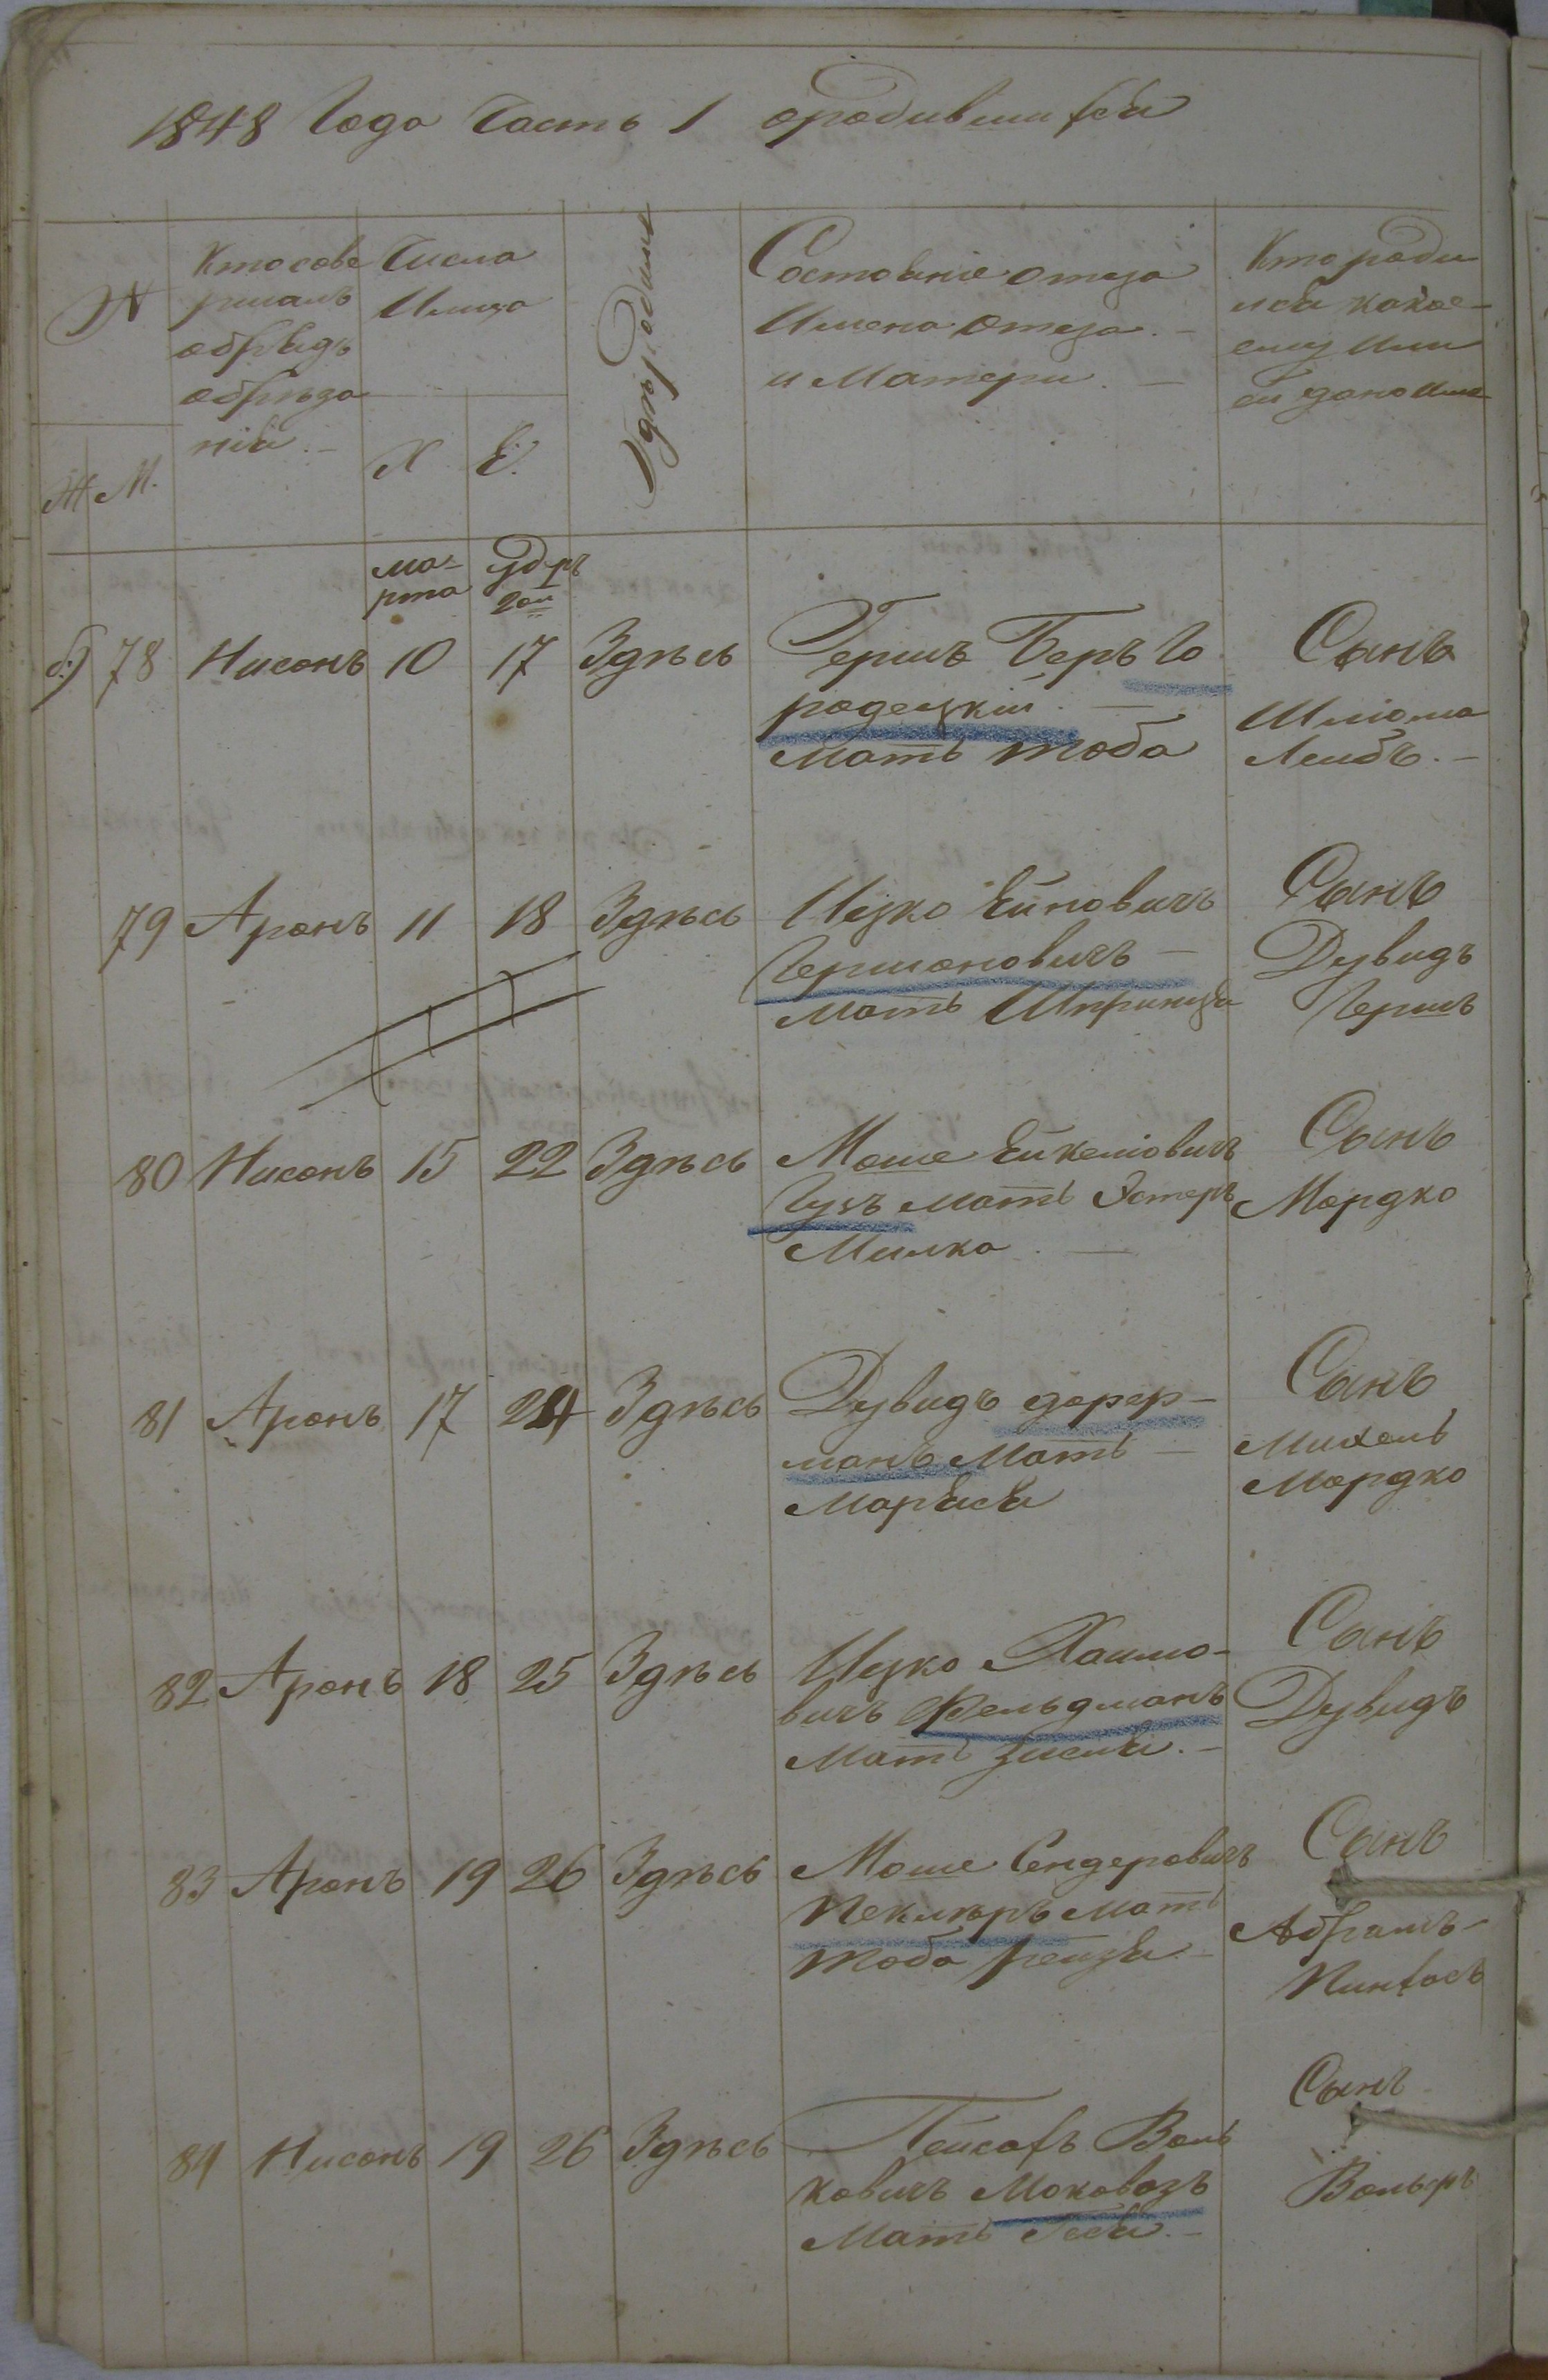 1848 Года Часть 1 ородившихся
№
Ж М.
Кто сове
ршалъ
обрядъ
обрѣза
нія.-
Числа
Имца
Х Е.
Удѣ родился
Состояніе отца
Имена отца.-
и Матери.-
Кто роди
лся какое-
ему или
ей дано имя
ма-
рта
удръ
2ои
78 Нисонъ 10 17 Здѣсь Гершъ Беръ Го
родецкій.-
мать тоба
Сынъ
Шліома
Леибъ.-
79 Аронъ 11 18 Здѣсь Ицко Ейновичъ
Гершоновичъ-
мать Шпринца
Сынъ
Дувидъ
Гершъ
80 Нисонъ 15 22 Здѣсь Моше Ейкеліовичъ
Гузъ мать Эстеръ
Милка.-
Сынъ
Мордко
81 Аронъ 17 24 Здѣсь Дувидъ дорер-
манъ Мать-
Маряся
Сынъ
Михель
Мордко
82 Аронъ 18 25 Здѣсь Ицко Хаимо-
вичъ Фельдманъ
Мать Зисля.-
Сынъ
Дувидъ
83 Аронъ 19 26 Здѣсь Моше Сендеровичъ
Пеклѣръ мать
тоба реизя-
Сынъ
Абрамъ-
Пинхосъ
84 Нисонъ 19 26 Здѣсь Пейсахъ Воль
ковичъ Моковозъ
Мать
Сынъ
Вольфъ